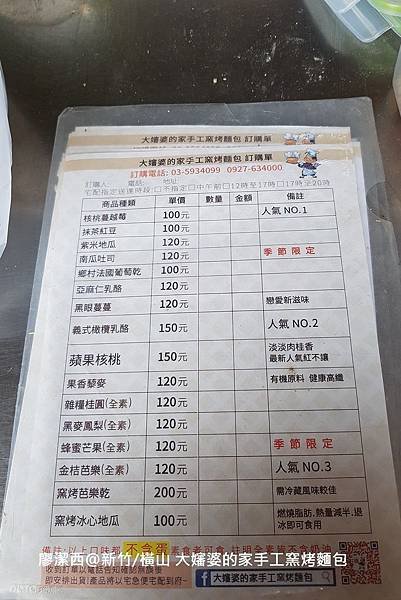 大嬸婆的家手工窯烤麵包 訂購單
大嬸婆的家手工窯烤麵包 訂購單
訂購電話: 03-5934099 0927-634000
訂購人: 電話: 地址:
宅配指定送達時段:□不指定□中午前□12時至17時□17時至20時
商品種類 單價 數量 金額 備註
核桃蔓越莓 100元 人氣 NO.1
抹茶紅豆 100元
紫米地瓜 120元
南瓜吐司 120元 季節限定
鄉村法國葡萄乾 100元
亞麻仁乳酪 120元
黑眼蔓蔓 120元 戀愛新滋味
義式橄欖乳酪 150元 人氣 NO.2
蘋果核桃 150元 淡淡肉桂香
最新人氣紅不讓
果香藜麥 120元 有機原料 健康高纖
雜糧桂圓(全素) 120元
黑麥鳳梨(全素) 120元
蜂蜜芒果(全素) 120元 季節限定
金桔芭樂(全素) 120元 人氣 NO.3
窯烤芭樂乾 200元 需冷藏風味較佳
窯烤冰心地瓜 100元 燃燒脂肪.熱量減半.退
冰即可食用
備註:以上口味都 不含蛋
廖潔西@新竹/橫山 大嬸婆的家手工窯烤麵包
即安排出貨!產品將以宅急便宅配到府~ 大嬸婆的家手工窯烤麵包